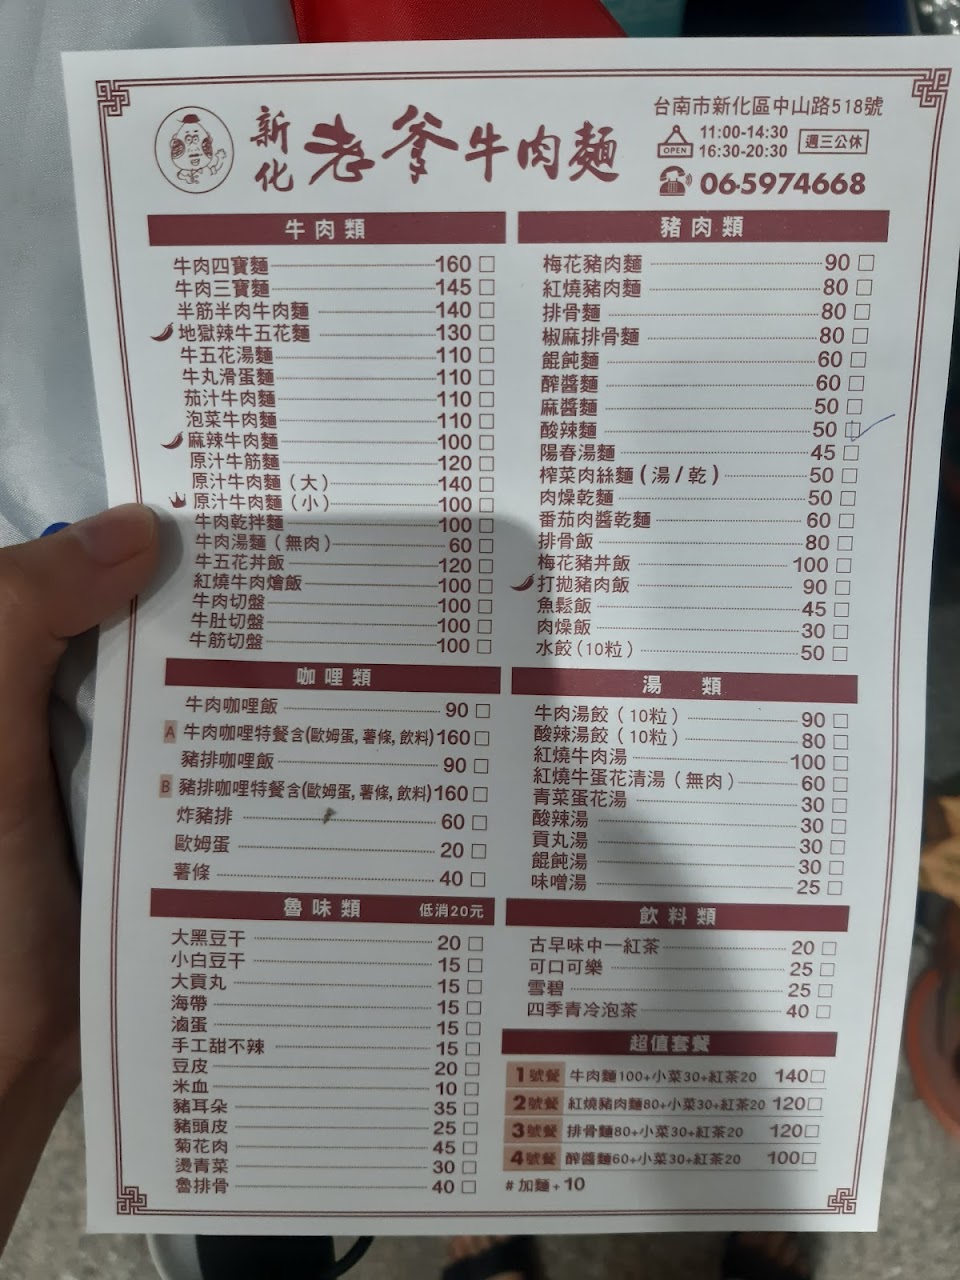 新化 老爹牛肉麵
台南市新化區中山路518號
OPEN 11:00-14:30
16:30-20:30 週三公休
06-5974668
牛肉類
牛肉四寶麵 160
牛肉三寶麵 145
半筋半肉牛肉麵 140
地獄辣牛五花麵 130
牛五花湯麵 110
牛丸滑蛋麵 110
茄汁牛肉麵 110
泡菜牛肉麵 110
麻辣牛肉麵 100
原汁牛筋麵 120
原汁牛肉麵(大) 140
原汁牛肉麵(小) 100
牛肉乾拌麵 100
牛肉湯麵(無肉) 60
牛五花丼飯 120
紅燒牛肉燴飯 100
牛肉切盤 100
牛肚切盤 100
牛筋切盤 100
咖哩類
牛肉咖哩飯 90
A 牛肉咖哩特餐含(歐姆蛋,薯條,飲料) 160
豬排咖哩飯 90
B 豬排咖哩特餐含(歐姆蛋,薯條,飲料) 160
炸豬排 60
歐姆蛋 20
薯條 40
魯味類 低消20元
大黑豆干 20
小白豆干 15
大貢丸 15
海帶 15
滷蛋 15
手工甜不辣 15
豆皮 20
米血 10
豬耳朵 35
豬頭皮 25
菊花肉 45
燙青菜 30
魯排骨 40
豬肉類
梅花豬肉麵 90
紅燒豬肉麵 80
排骨麵 80
椒麻排骨麵 80
餛飩麵 60
醡醬麵 60
麻醬麵 50
酸辣麵 50
陽春湯麵 45
榨菜肉絲麵(湯/乾) 50
肉燥乾麵 50
番茄肉醬乾麵 60
排骨飯 80
梅花豬丼飯 100
打拋豬肉飯 90
魚鬆飯 45
肉燥飯 30
水餃(10粒) 50
湯類
牛肉湯餃(10粒) 90
酸辣湯餃(10粒) 80
紅燒牛肉湯 100
紅燒牛蛋花清湯(無肉) 60
青菜蛋花湯 30
酸辣湯 30
貢丸湯 30
餛飩湯 30
味噌湯 25
飲料類
古早味中一紅茶 20
可口可樂 25
雪碧 25
四季青冷泡茶 40
超值套餐
1號餐 牛肉麵100+小菜30+紅茶20 140
2號餐 紅燒豬肉麵80+小菜30+紅茶20 120
3號餐 排骨麵80+小菜30+紅茶20 120
4號餐 醡醬麵60+小菜30+紅茶20 100
#加麵+10